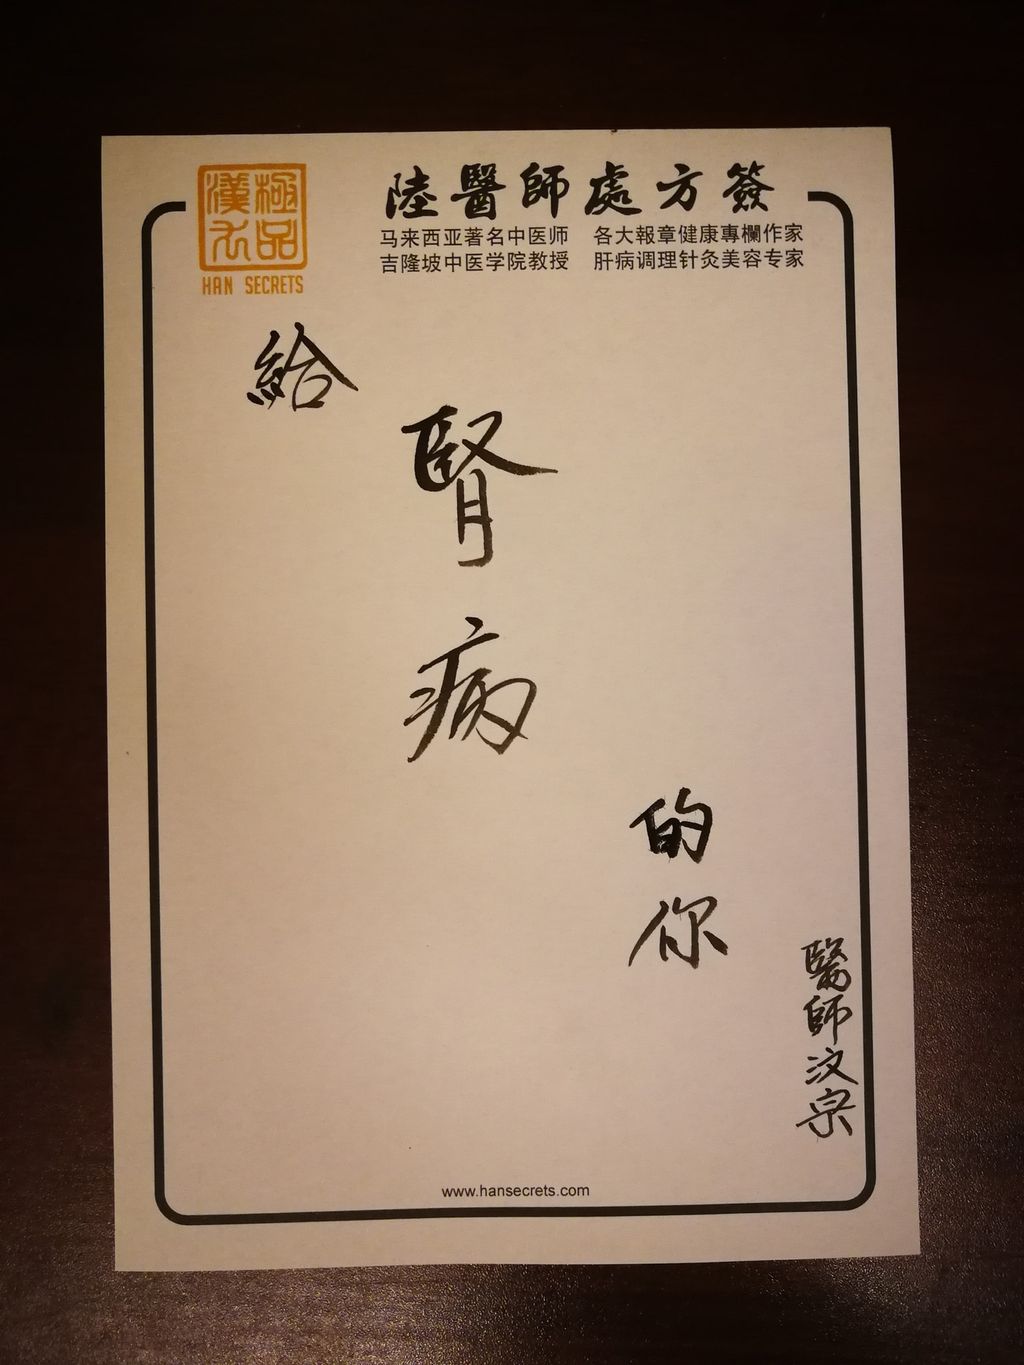 極品
漢方
HAN SECRETS
陸醫師處方簽
马来西亚著名中医师 各大報章健康專欄作家
吉隆坡中医学院教授 肝病调理针灸美容专家
給
腎病
的你
醫師汶宗
www.hansecrets.com